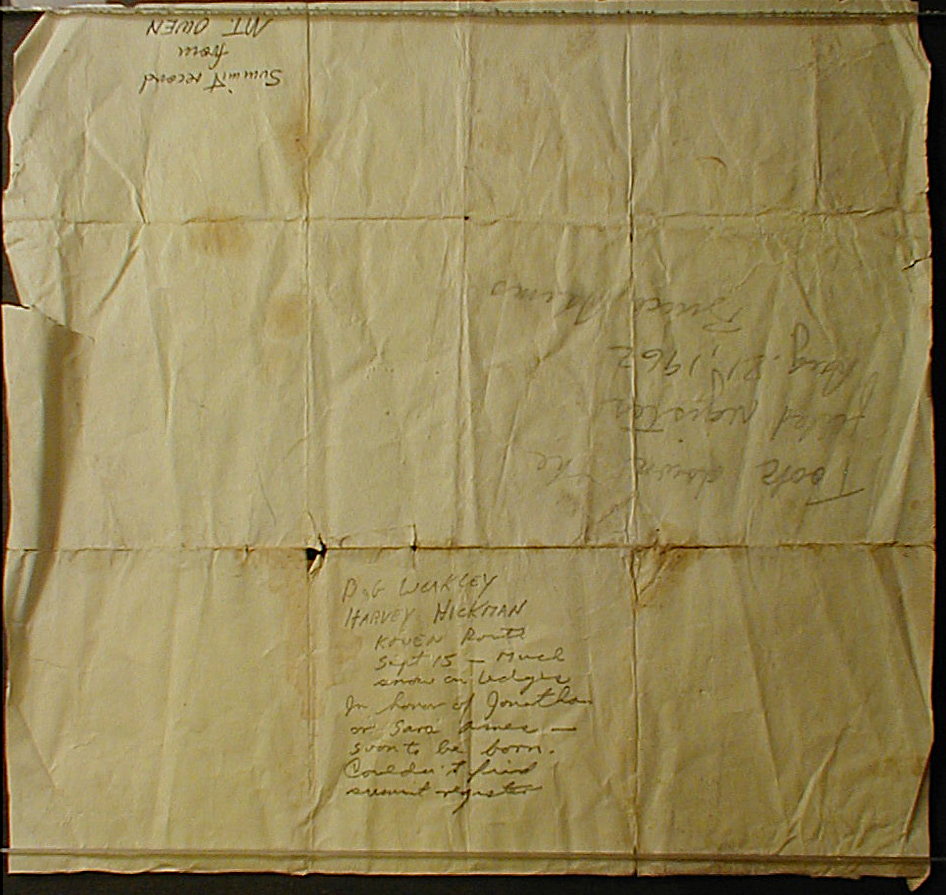 Summit record
from
MT. OWEN
Took down the
filled register
Aug. 21, 1962
HARVEY HICKMAN
KOVEN Route
Sept 15 — Much
snow on ledges
In honor of Jonathan
or Sara —
soon to be born.
Couldn't find
summit register